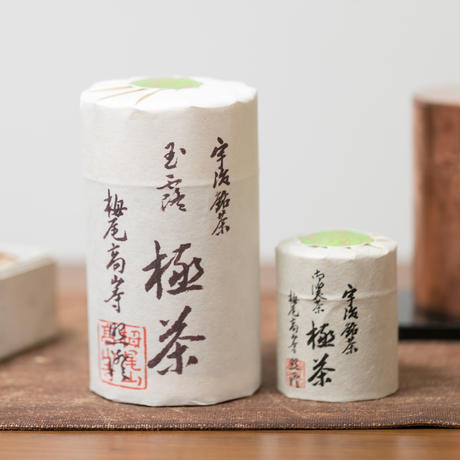 宇治銘茶
玉露
極茶
栂尾高山寺
宇治銘茶
極茶
栂尾高山寺